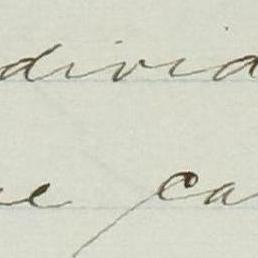 divid
e ca